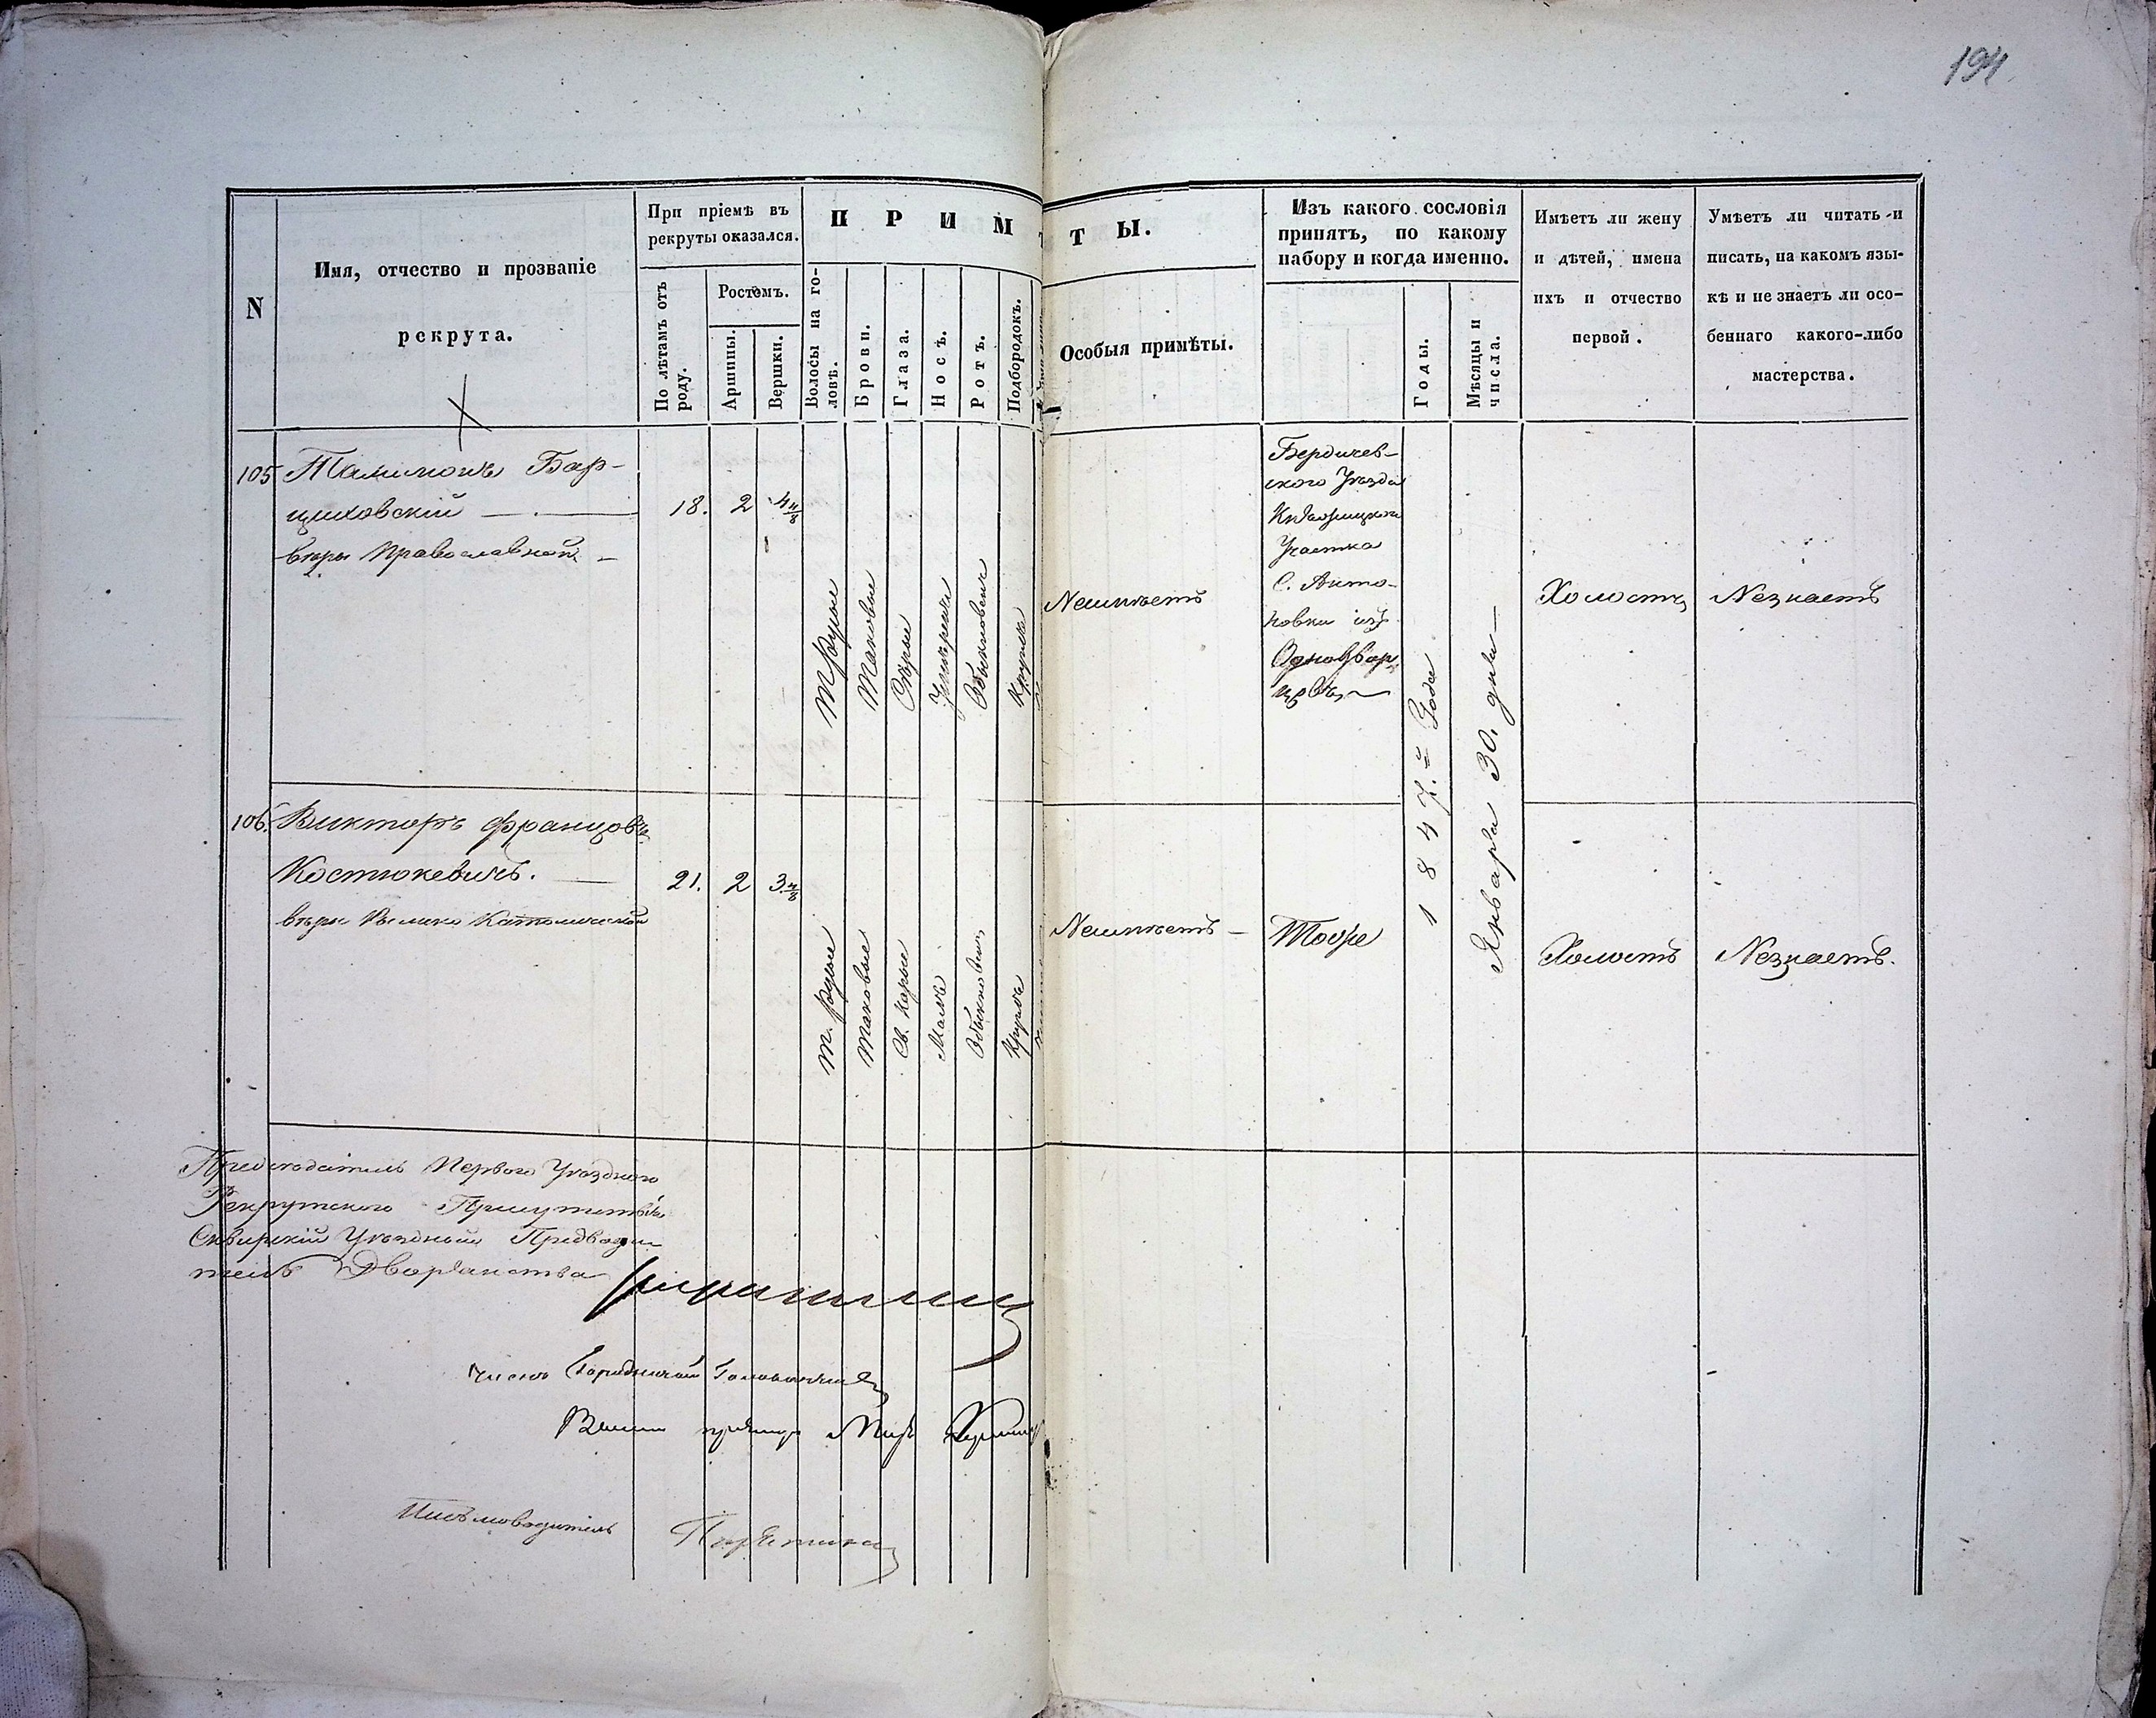 194.
N
Имя, отчество и прозваніе
рекрута.
При пріемѣ въ
рекруты оказался.
По лѣтамъ отъ
роду.
Ростомъ.
Аршины.
Вершки.
П Р И М Ѣ Т Ы.
Волосы на го-
ловѣ.
Брови.
Глаза.
Носъ.
Ротъ.
Подбородокъ.
Особыя примѣты.
Изъ какого сословія
принятъ, по какому
набору и когда именно.
Годы.
Мѣсяцы и
числа.
Имѣетъ ли жену
и дѣтей, имена
ихъ и отчество
первой.
Умѣетъ ли читать и
писать, на какомъ язы-
кѣ и не знаетъ ли осо-
беннаго какого-либо
мастерства.
105 Бар-
щиховскій
вѣры Православной
18.
2
4 4/8
Т русые
Таковые
Сѣрые
Умѣренъ
Обыкновенъ
Круглъ
Неимѣетъ
Бердичев-
ского Уѣзда
Участка
С. Анто-
новки изъ
Однодвор-
цовъ
1847.й Года
Января 30. дня
Холостъ
Незнаетъ
106. Викторъ Францовъ
Костюкевичъ.
вѣры Римско Католической
21.
2
3 4/8
Т. русые
Таковые
Св. карые
Малъ
Обыкновенъ
Круглъ
Неимѣетъ
Тоже
Холостъ
Незнаетъ.
Председатель Первого Уѣздного
Рекрутского Присутствія
Сквирскій Уѣздный Предводи
тель Дворянства
Членъ Городничій
Письмоводитель